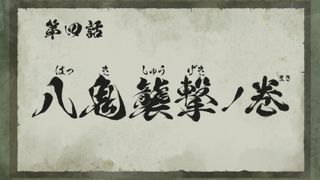 第四話
はっ き しゅう げき まき
八鬼襲撃ノ巻